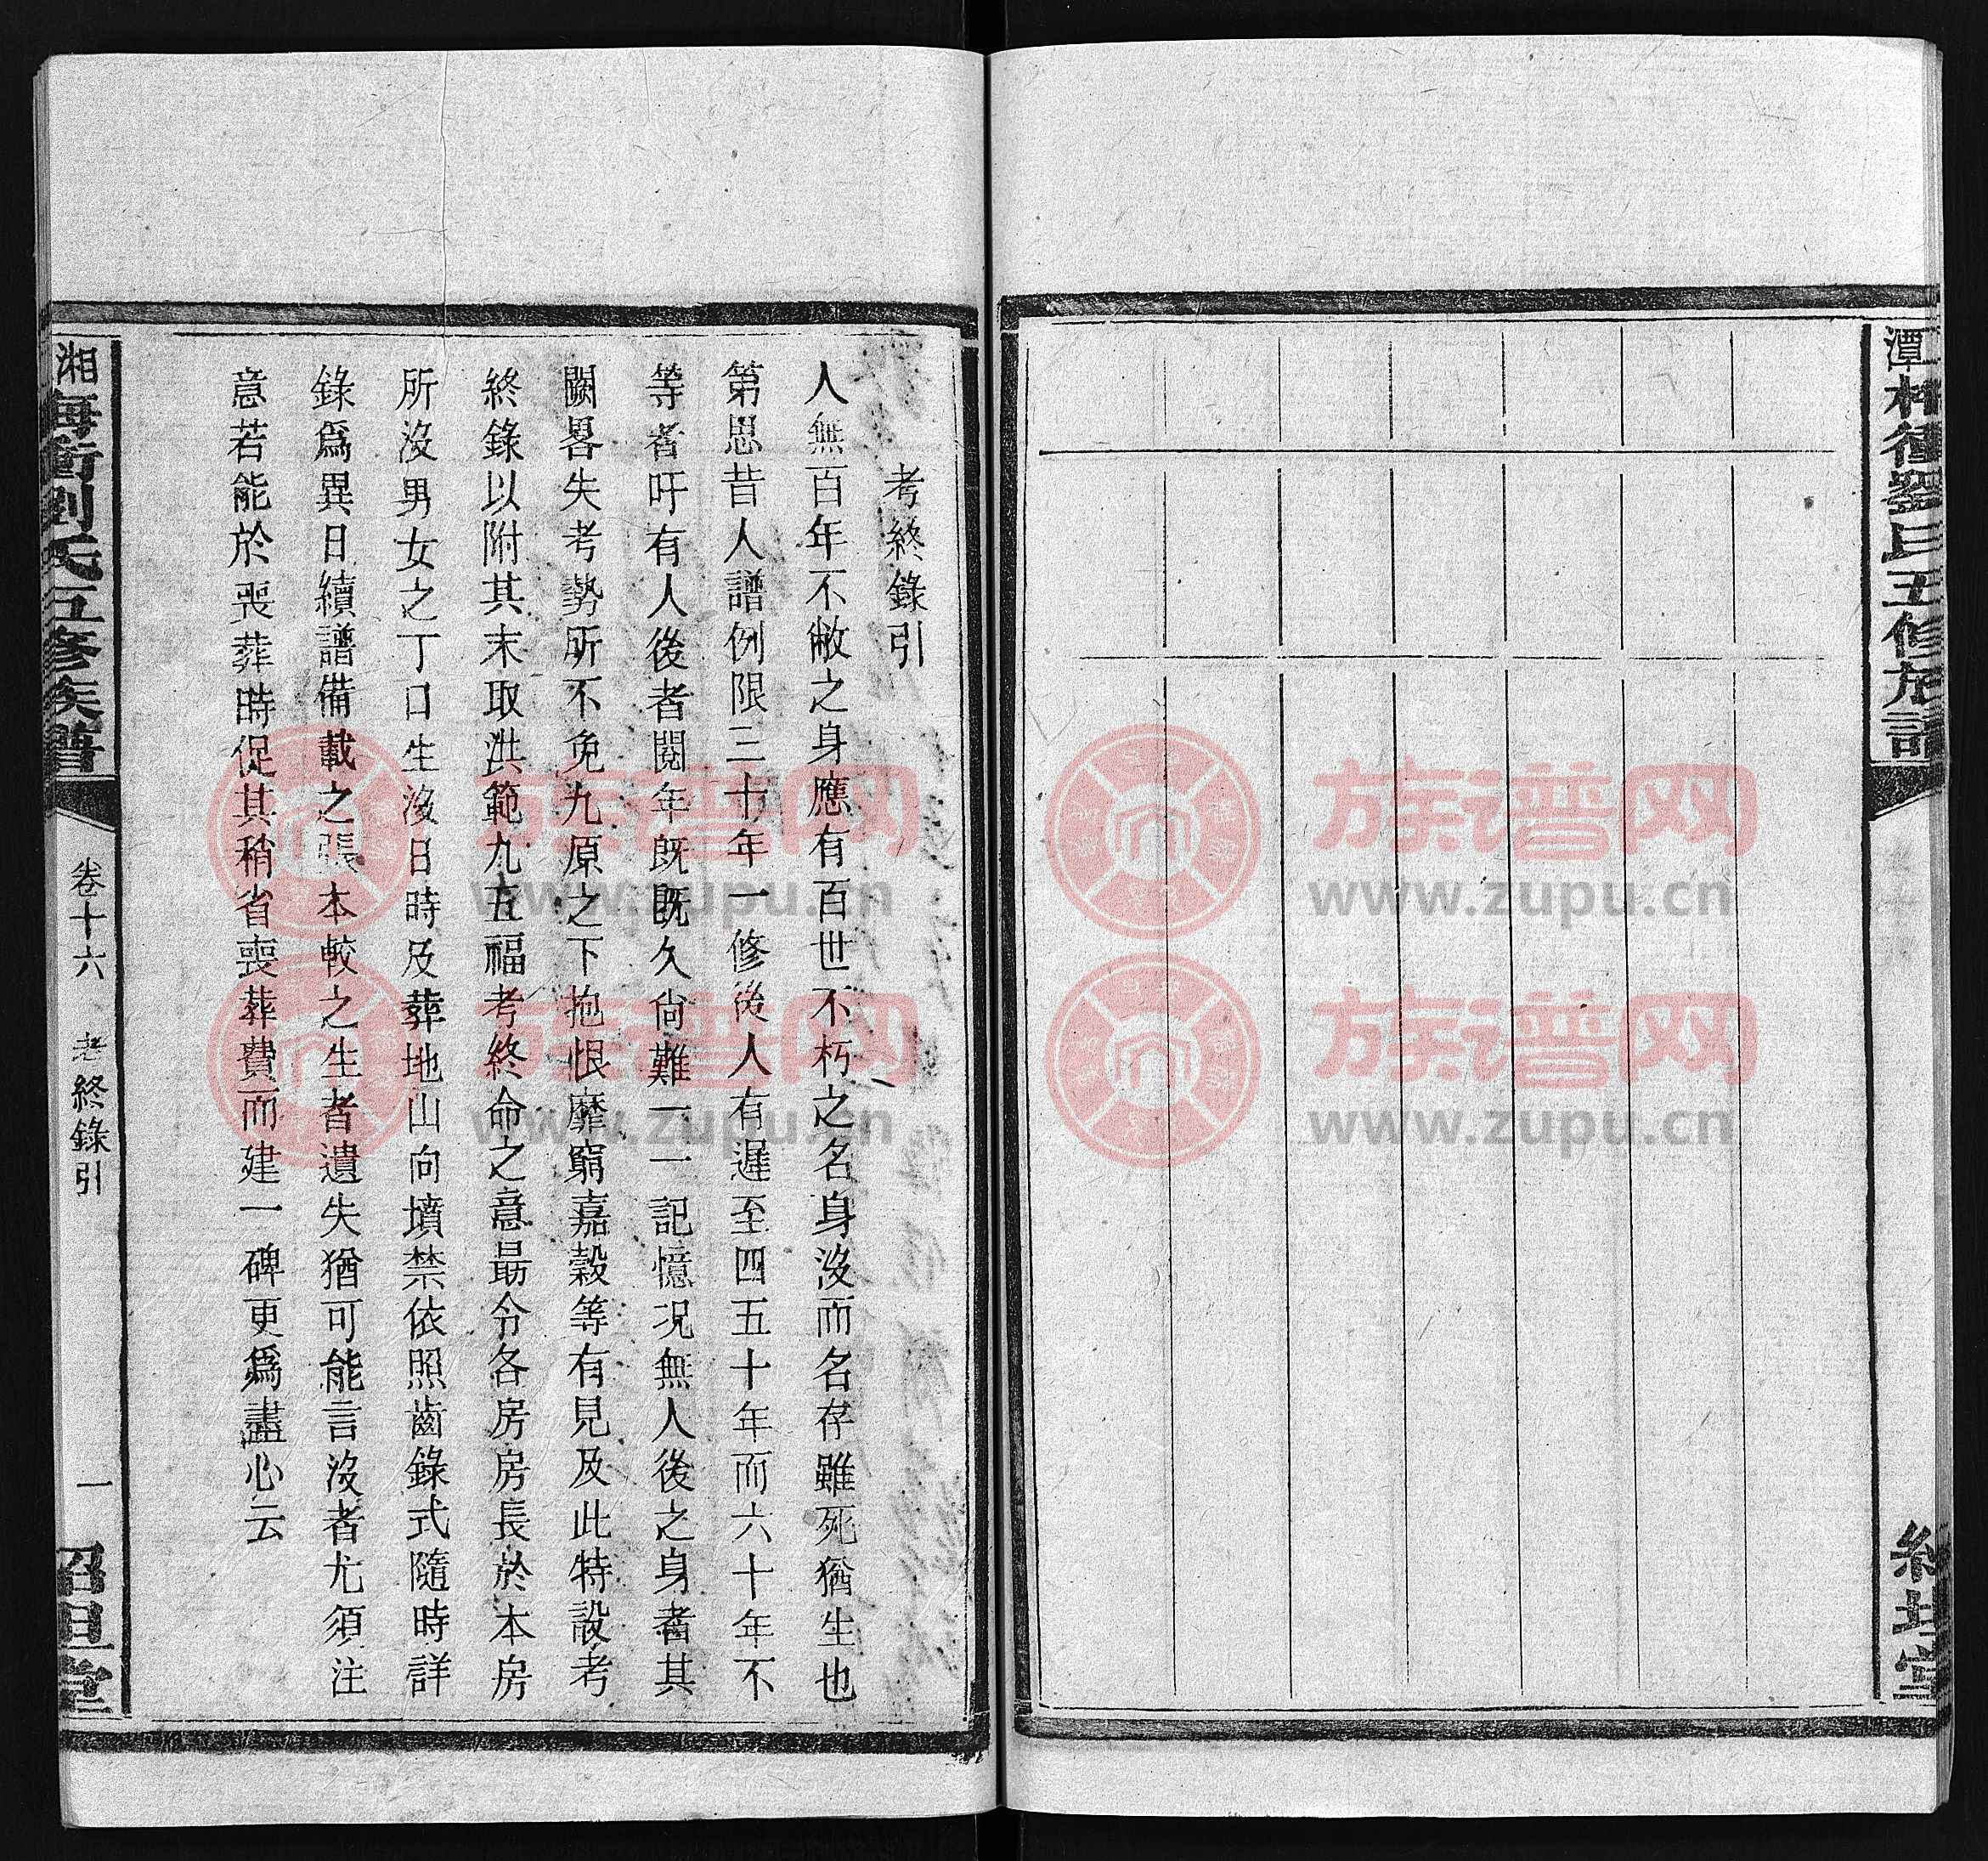 考終錄引
人無百年不敝之身應有百世不朽之名身沒而名存雖死猶生也
第思昔人譜例限三十年一修後人有遲至四五十年而六十年不
等者吁有人後者閱年既既久尙難一一記憶況無人後之身者其
闕畧失考勢所不免九原之下抱恨靡窮嘉穀等有見及此特設考
終錄以附其末取洪範九五福考終命之意最令各房房長於本房
所沒男女之丁口生沒日時及葬地山向墳禁依照齒錄式隨時詳
錄爲異日續譜備載之張本較之生者遺失猶可能言沒者尤須注
意若能於喪葬時促其稍省喪葬費而建一碑更爲盡心云
湘 衝劉氏五修族譜
卷十六
考終錄引
一
堂
潭 五修 
堂
族谱网
www.zupu.cn
族谱网
www.zupu.cn
族谱网
www.zupu.cn
族谱网
www.zupu.cn